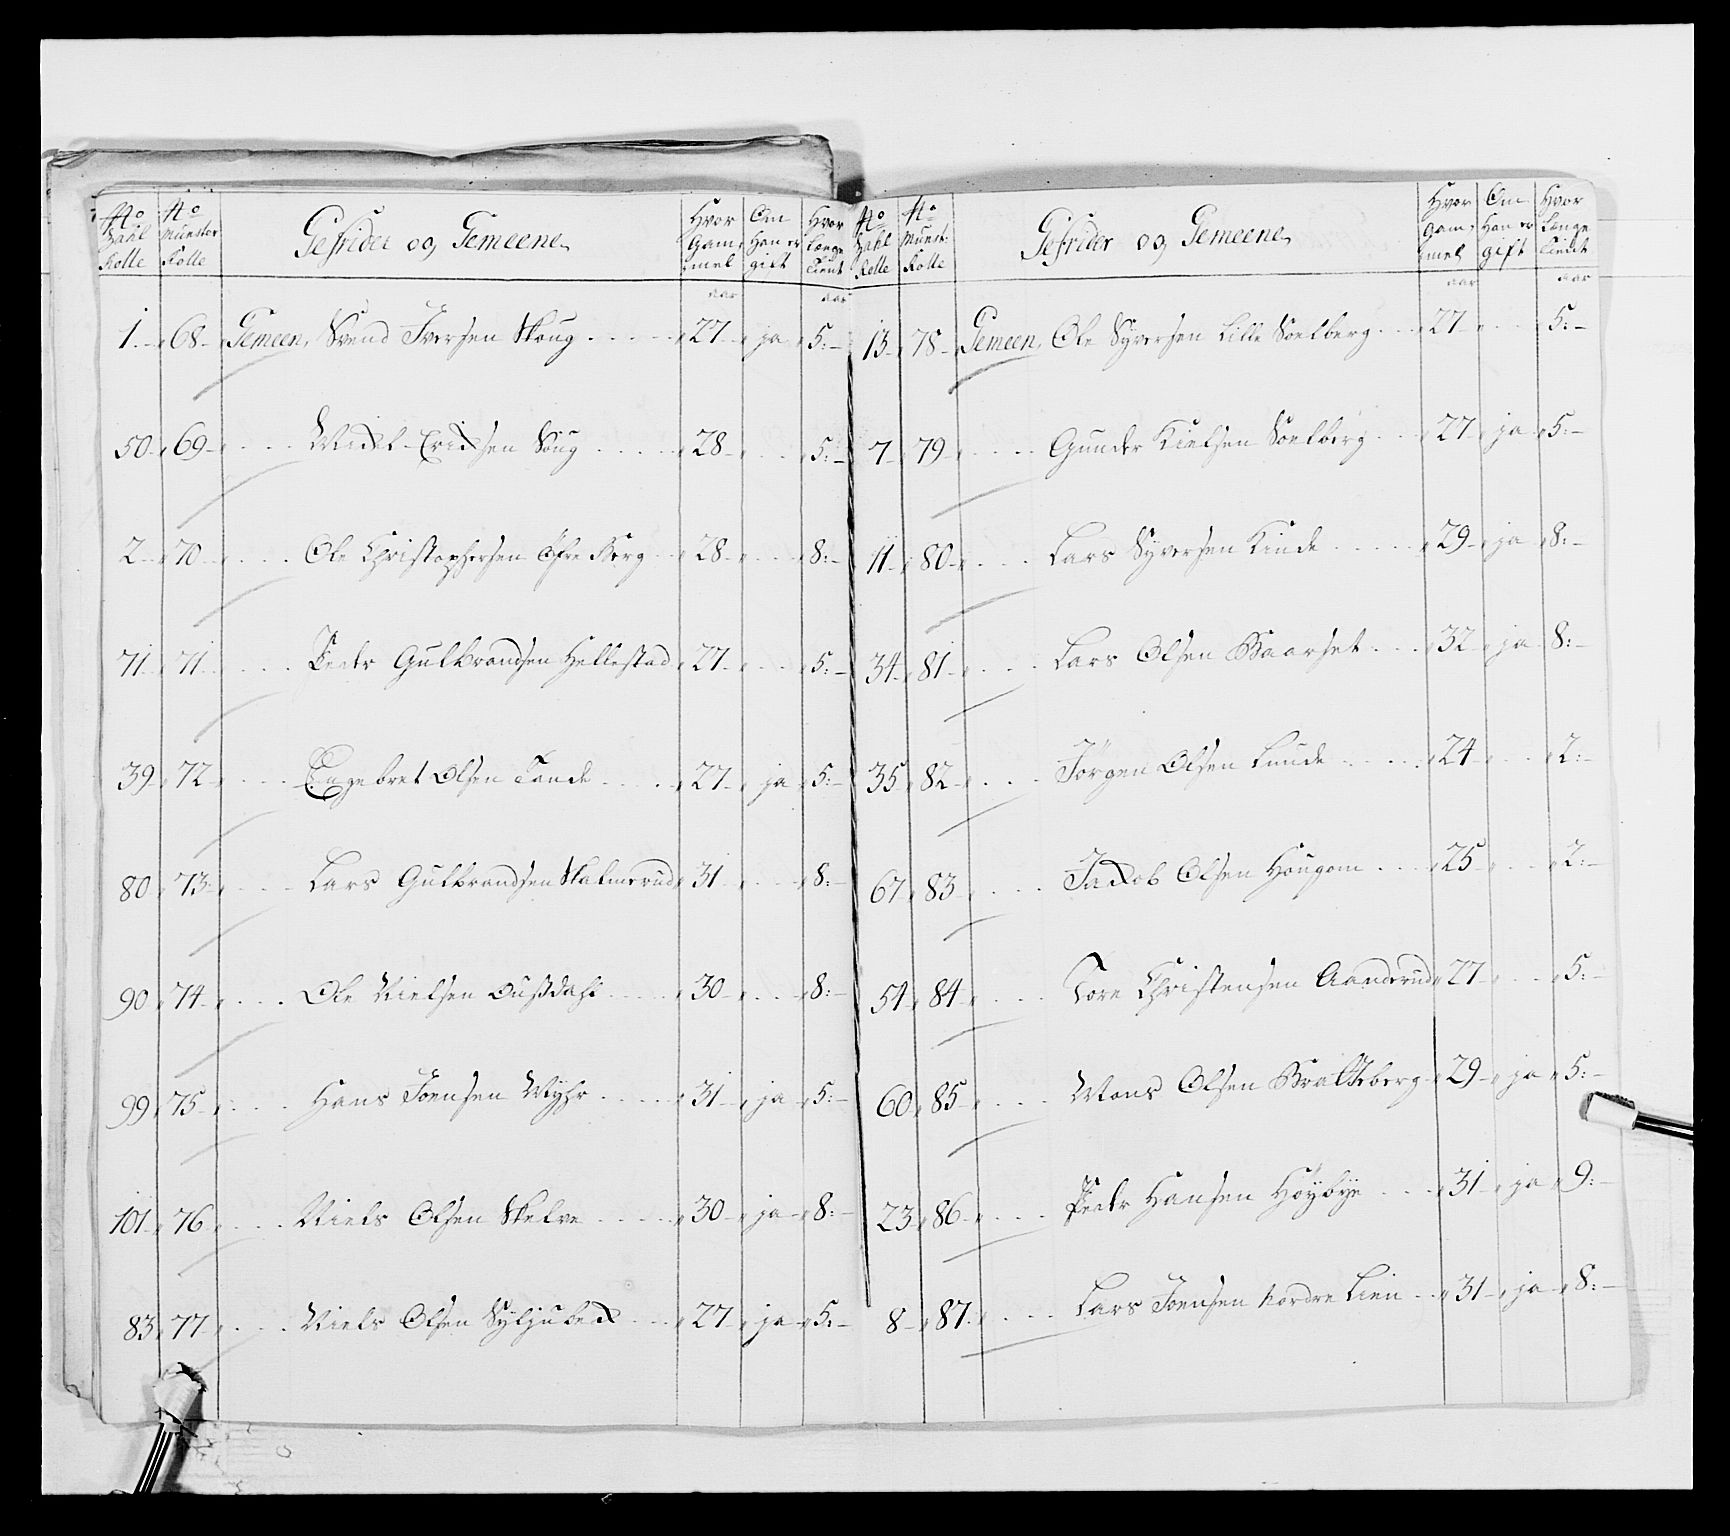 No Zahl Rolle | No Munster Rolle | Gefrider og Gemeene | Hvor Gammel | Om Han er gift | Hvor Længe Tient
aar aar
1 68 Gemeen, Svend Iversen Skoug 27 ja 5:
50 69 Erichsen 28 5:
2 70 Ole Christophersen Øfre Berg 28 8:
71 71 Peder Gulbrandsen Hellestad 27 5:
39 72 Engebret Olsen Tande 27 ja 5:
80 73 Lars Gulbrandsen Skalmerud 31 8:
90 74 Ole Nielsen 30 8:
99 75 Hans Joensen Myhr 31 ja 5:
101 76 Niels Olsen Skelve 30 ja 8:
83 77 Niels Olsen Syljubech 27 ja 5:
No Zahl Rolle | No Munst: Rolle | Gefrider og Gemeene | Hvor Gammel | Om Han er gift | Hvor Længe Tient
aar aar
13 78 Gemeen, Ole Syversen Lille Soelberg 27 5:
7 79 Gunder Kielsen Soelberg 27 ja 5:
11 80 Lars Syversen Kinde 29 ja 8:
34 81 Lars Olsen Baarset 32 ja 8:
35 82 Jörgen Olsen Lunde 24 2:
67 83 Jachob Olsen Hougom 25 2:
54 84 Tore Christensen Aanderud 27 5:
60 85 Mons Olsen Bratteberg 29 ja 5:
23 86 Peder Hansen Höybye 31 ja 9:
8 87 Lars Joensen Nordre Lien 31 ja 8: